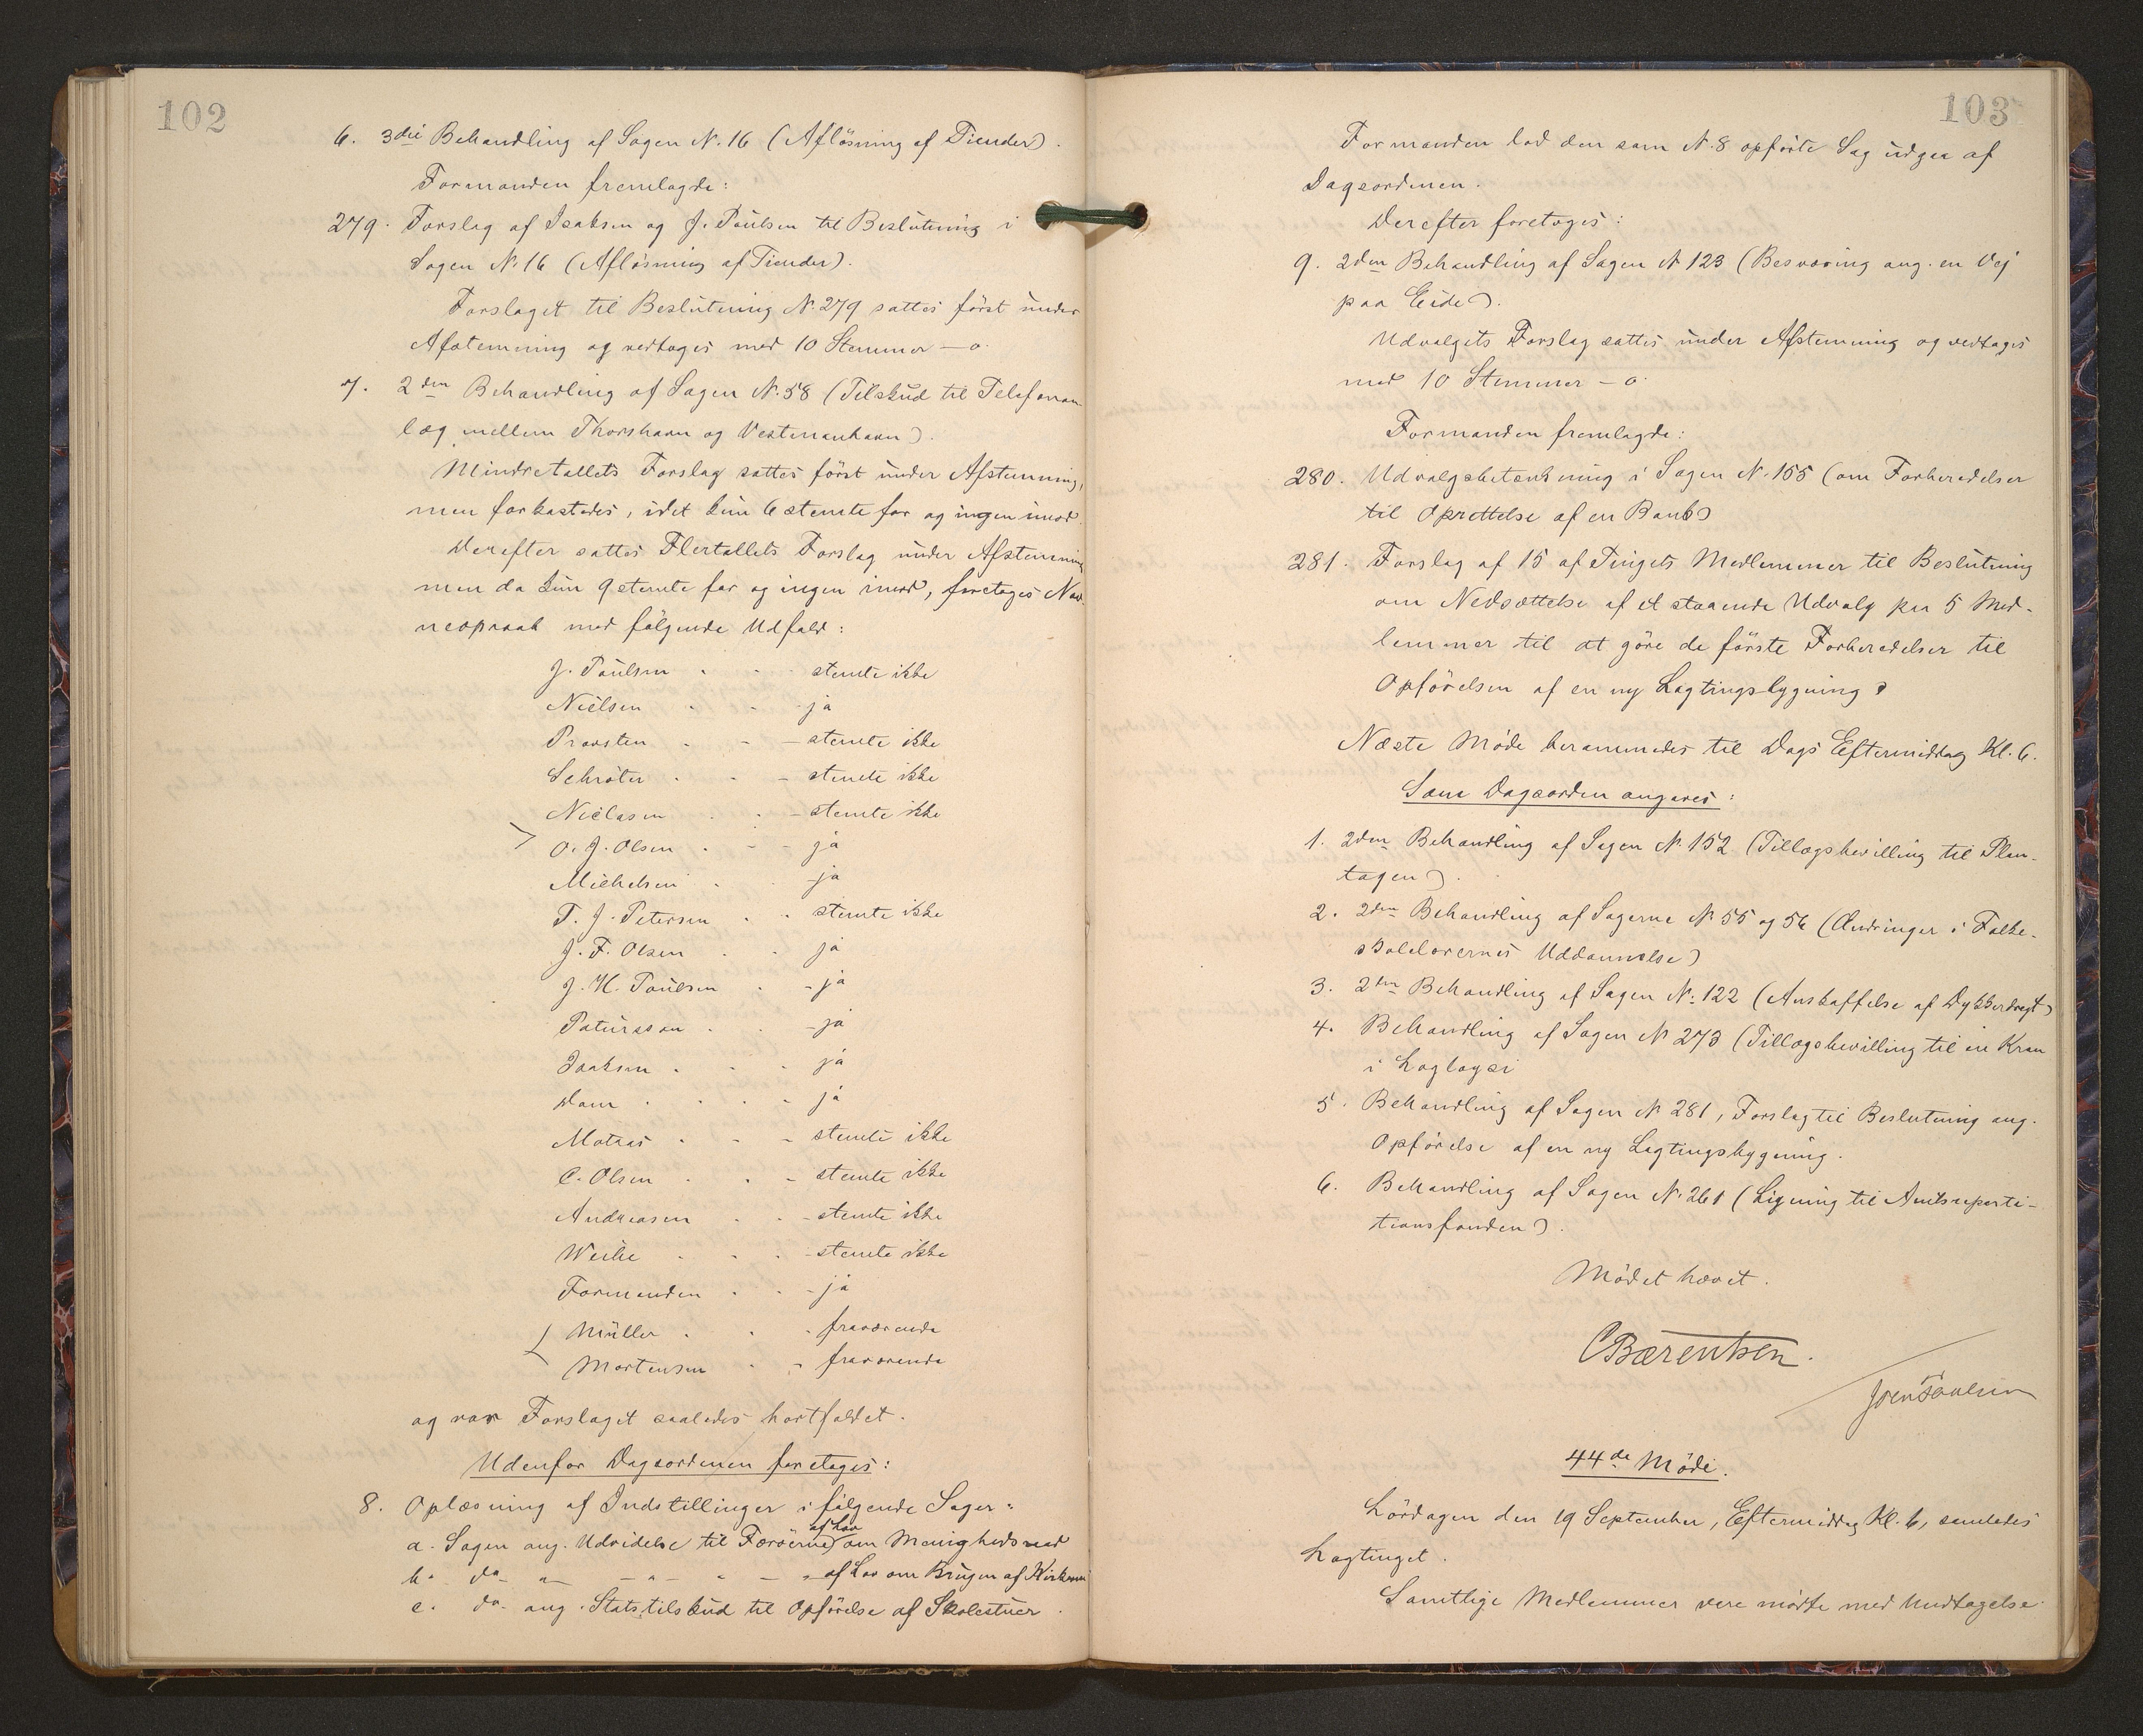 102
6. 3die Behandling af Sagen N. 16 (Aflösning af Tiender).
Formanden fremlagde:
279. Forslag af Isaksen og J. Poulsen til Beslutning i
Sagen N. 16 (Aflösning af Tiender).
Forslaget til Beslutning N. 279 sattes först under
Afstemning og vedtoges med 10 Stemmer – 0.
7. 2den Behandling af Sagen N. 58 (Tilskud til Telefonan-
læg mellem Thorshavn og Vestmanhavn).
Mindretallets Forslag sattes först under Afstemning,
men forkastedes, idet kun 6 stemte for og ingen imod.
Derefter sattes Flertallets Forslag under Afstemning
men da kun 9 stemte for og ingen imod, foretoges Nav-
neopraab med fölgende Udfald:
J. Poulsen . - stemte ikke
Nielsen . - - ja
Provsten . - - stemte ikke
Schröter . - - stemte ikke
Niclasen . . - stemte ikke
O. J. Olsen . - - ja
Michelsen . - ja
T. J. Petersen . . stemte ikke
J. F. Olsen . . ja
J. H. Poulsen . - ja
Patursson . . - ja
Isaksen . . . ja
Dam . . . - ja
Motras . - - stemte ikke
C. Olsen . . - stemte ikke
Andreasen . . - stemte ikke
Weihe . . . - stemte ikke
Formanden . . - ja
Müller . . . fraværende
Mortensen . - fraværende
og var Forslaget saaledes bortfaldet.
Udenfor Dagsordenen foretoges:
8. Oplæsning af Indstillinger i fölgende Sager:
af Lov
a. Sagen ang. Udvidelse til Færöerne om Menighedsraad
b. do - " - - " - " - - af Lov om Brugen af Kirkerne
c. do - ang. Statstilskud til Opförelse af Skolestuer.
103
Formanden lod den som N. 8 opförte Sag udgaa af
Dagsordenen.
Derefter foretoges:
9. 2den Behandling af Sagen N 123 (Besværing ang. en Vej
paa Eide).
Udvalgets Forslag sattes under Afstemning og vedtoges
med 10 Stemmer – 0.
Formanden fremlagde:
280. Udvalgsbetænkning i Sagen N. 155 (om Forberedelser
til Oprettelse af en Bank)
281. Forslag af 15 af Tingets Medlemmer til Beslutning
om Nedsættelse af et staaende Udvalg paa 5 Med-
lemmer til at göre de förste Forberedelser til
Opförelsen af en ny Lagtingsbygning.
Næste Möde berammedes til Dags Eftermiddag Kl. 6.
Som Dagsorden angaves:
1. 2den Behandling af Sagen N. 152 (Tillægsbevilling til Plan-
tagen).
2. 2den Behandling af Sagerne N. 55 og 56 (Ændringer i Folke-
skolelærernes Uddannelse)
3. 2den Behandling af Sagen N. 122 (Anskaffelse af Dykkerdragt)
4. Behandling af Sagen N 273 (Tillægsbevilling til en Kran
i Lagtoyri
5. Behandling af Sagen N 281, Forslag til Beslutning ang.
Opförelse af en ny Lagtingsbygning.
6. Behandling af Sagen N. 261 (Ligning til Amtsreparti-
tionsfonden).
Mödet hævet.
CBærentsen.
Joen Poulsen
44de Möde.
Lördagen den 19 September, Eftermiddag Kl. 6, samledes
Lagtinget.
Samtlige Medlemmer vare mödte med Undtagelse